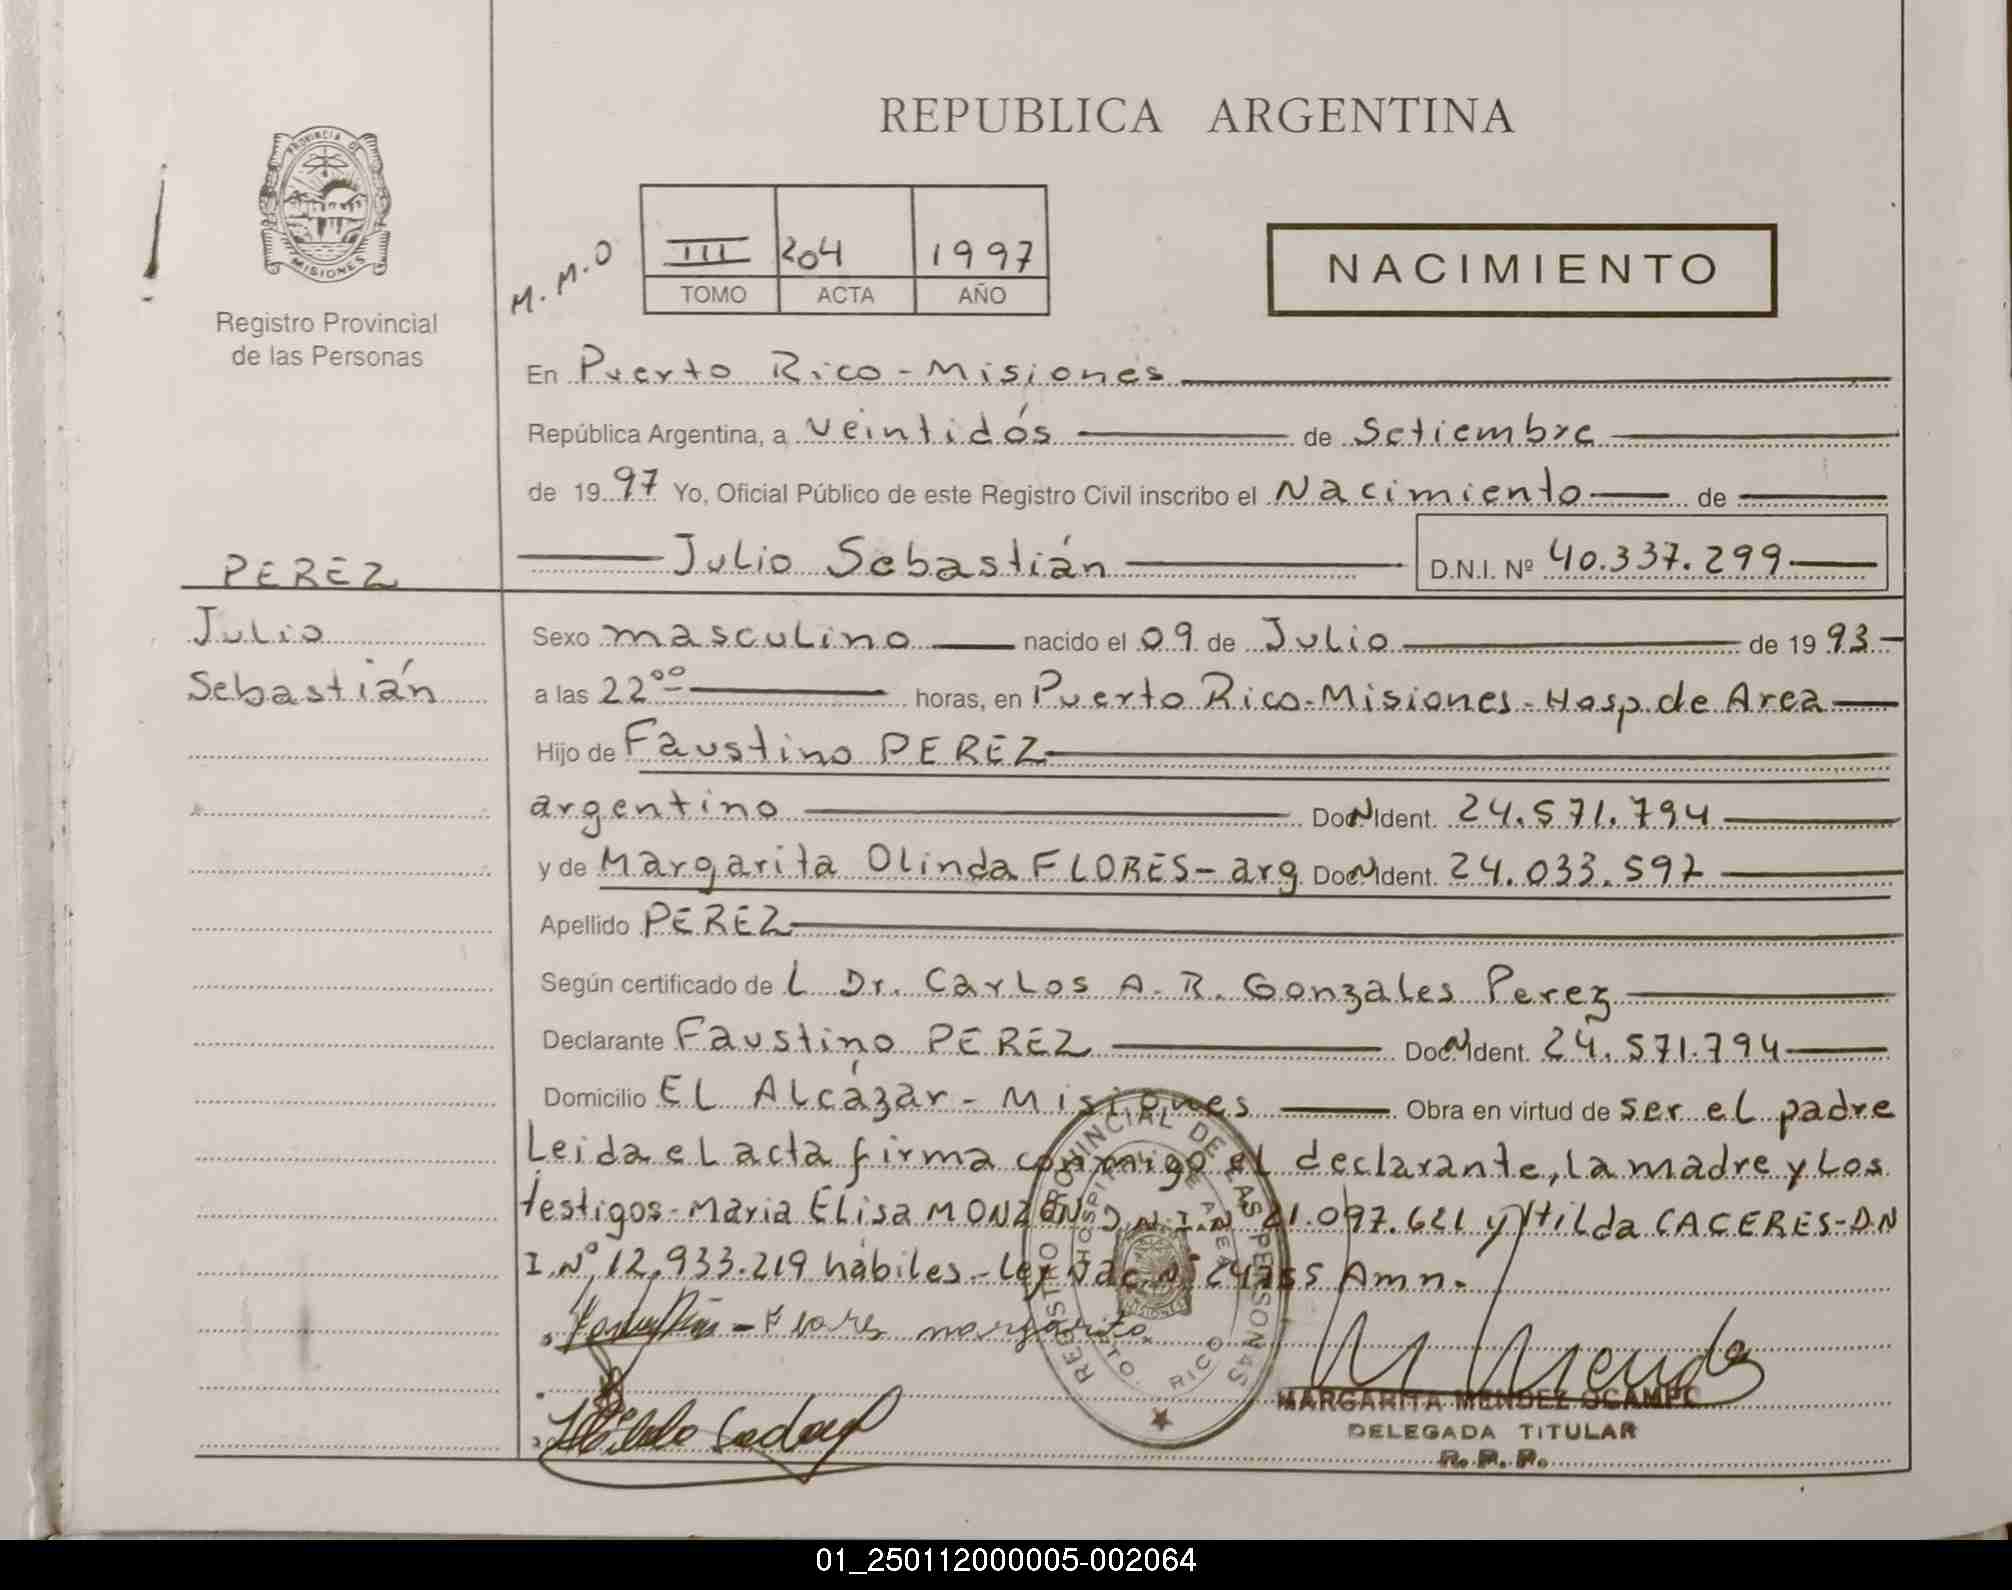 REPUBLICA ARGENTINA
PROVINCIA DE
MISIONES
Registro Provincial
de las Personas
M.M.O
III 204 1997
TOMO ACTA AÑO
NACIMIENTO
En Puerto Rico - Misiones
República Argentina, a veintidós de Setiembre
de 1997 Yo, Oficial Público de este Registro Civil inscribo el Nacimiento de
Julio Sebastián D.N.I. Nº 40.337.299
PEREZ
Julio
Sebastián
Sexo masculino nacido el 09 de Julio de 1993
a las 22⁰⁰ horas, en Puerto Rico-Misiones-Hosp. de Area
Hijo de Faustino PEREZ
argentino Doc. N Ident. 24.571.794
y de Margarita Olinda FLORES - arg. Doc. N Ident. 24.033.597
Apellido PEREZ
Según certificado de L Dr. Carlos A. R. Gonzales Perez
Declarante Faustino PEREZ Doc. N Ident. 24.571.794
Domicilio EL Alcázar - Misiones Obra en virtud de ser el padre
Leida el acta firma conmigo el declarante, la madre y los
testigos - Maria Elisa MONZÓN D.N.I.N 21.097.621 y Hilda CACERES - DN
I.Nº 12.933.219 hábiles - Ley Nac. Nº 24755 Amn.
Flores margarita
REGISTRO PROVINCIAL DE LAS PERSONAS
HOSPITAL DE AREA
PTO. RICO
MARGARITA MENDEZ OCAMPO
DELEGADA TITULAR
R. P. P.
01_250112000005-002064